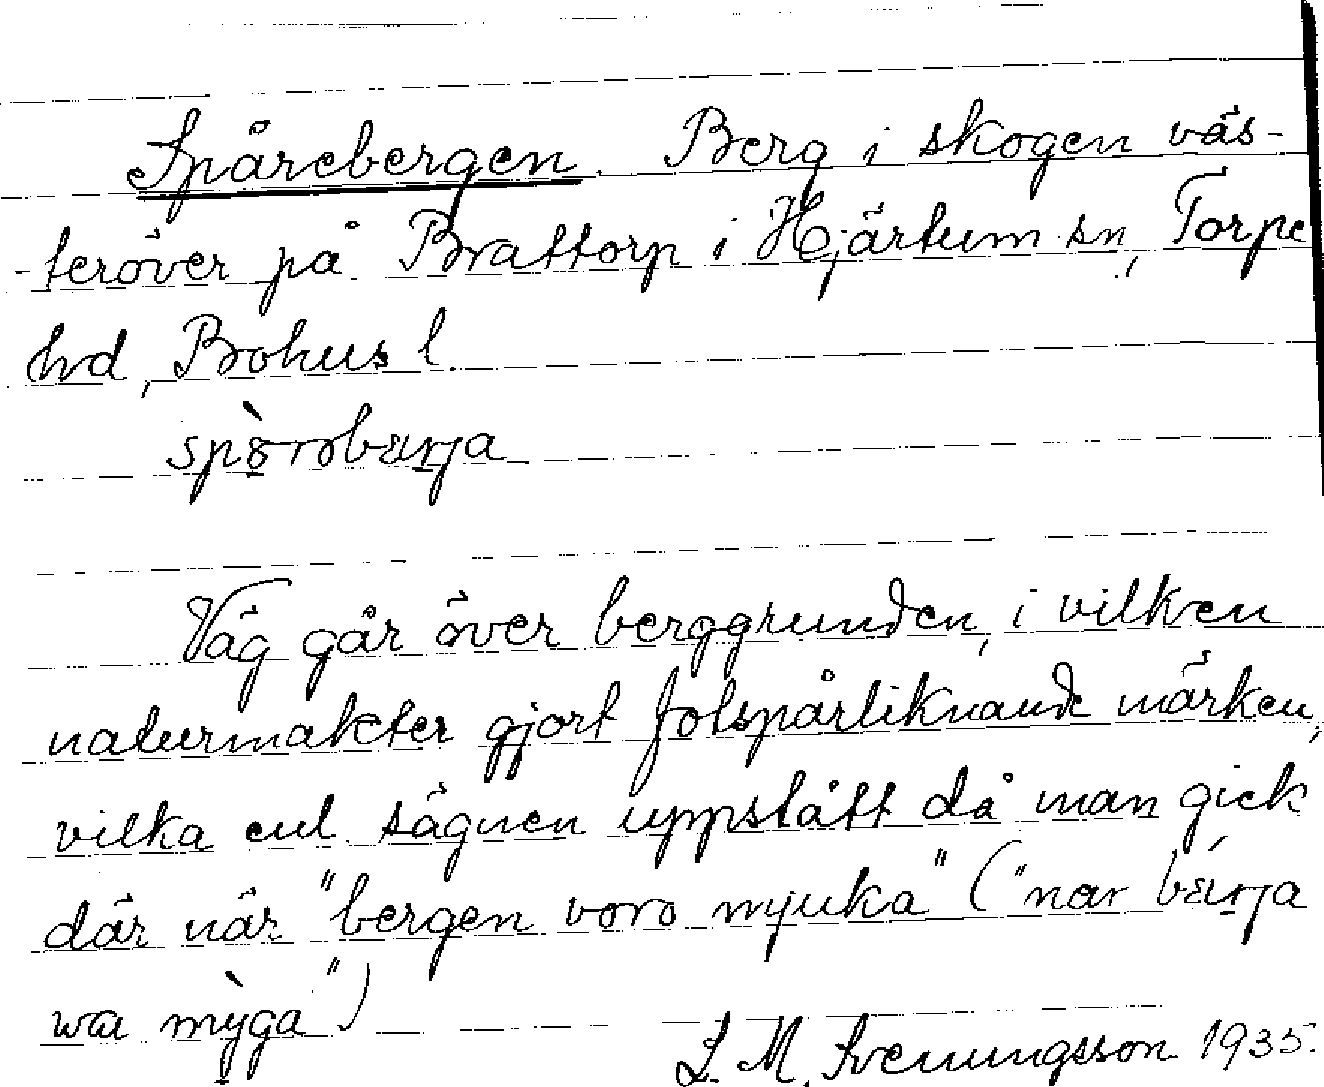 Spårebergen. Berg i skogen väs-
-teröver på Brattorp i Hjärtum sn, Torpe
hd, Bohus l.
spò̤rəbærja
Väg går över berggrunden, i vilken
naturmakter gjort fotspårliknande märken,
vilka enl. sägnen uppstått då man gick
där när "bergen voro mjuka" ("nar bærja
wa mỳga")
S. M. Svenungsson 1935.